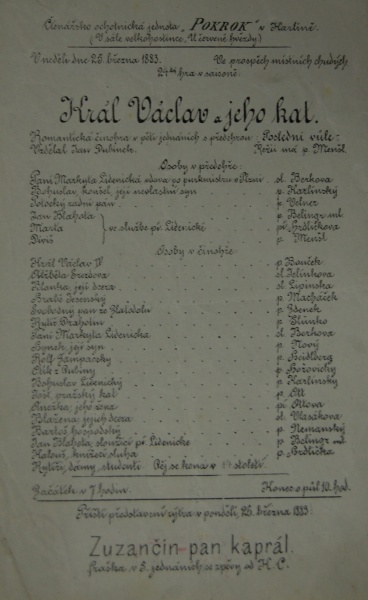 Čtenářsko ochotnická jednota "POKROK" v Karlíně.
(V sále velkohostince "U červené hvězdy)
V neděli dne 25. března 1883. Ve prospěch místních chudých
24tá hra v saisoně:
Král Václav a jeho kat.
Romantická činohra v pěti jednáních s předehrou: "Poslední vůle"
Vzdělal Jan Dubínek. Režii má p. Menšl.
Osoby v předehře:
Paní Markyta Lidenická vdova po purkmistru v Plzni sl. Berkova
Bohuslav, koníšel, její nevlastní syn p. Karlínský
radní pán p. Velner
Jan Blahota p. Belingr ml.
Marta ve službě pí. Lidenické pí. Hrdličkova
Diviš p. Menšl
Osoby v činohře:
Král Václav IV p. Bouček
Alžběta sl. Jelínkova
Blanka, její dcera sl. Lipinska
Hrabě p. Macháček
Svobodný pan ze p. Zdenek
Rytíř p. Hlinko
Paní Markyta Lidenicka sl. Berkova
Hynek, její syn p. Nový
Rolf p. Heidlberg
Oldř. z Dubiny p. Hořovický
Bohuslav Lidenický p. Karlinsky
Jošt, pražský kat p. Ott
Anežka, jeho žena pí. Ottova
Blažena, jejich dcera sl. Vlasákova
Bartoš hospodský p. Nemanský
Jan Blahota, sloužící pí. Lidenické p. Belingr ml.
Kalouš, knížecí sluha p. Hrdlička
Rytíři, dámy, studenti. Děj se koná v 14 století.
Začátek v 7 hodin. Konec o půl 10. hod.
Příští představení výbra v pondělí, 26. března 1883:
Zuzančin pan kaprál.
Fraška v 5. jednáních se zpěvy od H. C.